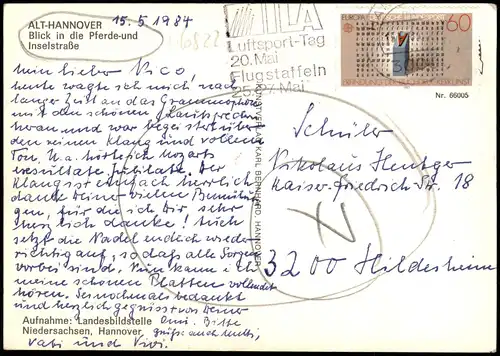 ALT-HANNOVER
Blick in die Pferde-und
Inselstraße
15.5.1984
ILA
Luftsport-Tag
20. Mai
Flugstaffeln
25./27. Mai
EUROPA
60
Nr. 66005
Mein lieber Nico,
heute wagte ich mich nach
langer Zeit an das Grammophon
mit den schönen Lautsprechern
heran und war begeistert über
den feinen Klang und vollen
Ton. U.a. hörte ich Mozarts
Exsultate Jubilate. Der
Klang ist einfach herrlich
danke Deiner vielen Bemühun-
gen, für die ich Dir sehr
herzlich danke! Auch
setzt die Nadel endlich wieder
richtig auf, so daß alle Sorgen
vorbei sind. Nun kann ich
meine schönen Platten vollendet
hören. Sei nochmals bedankt
und herzlich gegrüßt von Deiner
Omi. Bitte
grüße auch Mutti,
Vati und Vivi.
Aufnahme: Landesbildstelle
Niedersachsen, Hannover
KUNSTVERLAG KARL BERNHARD, HANNOVER
Schüler
Nikolaus Hentger
Kaiser-Friedrich-Str. 18
3200 Hildesheim